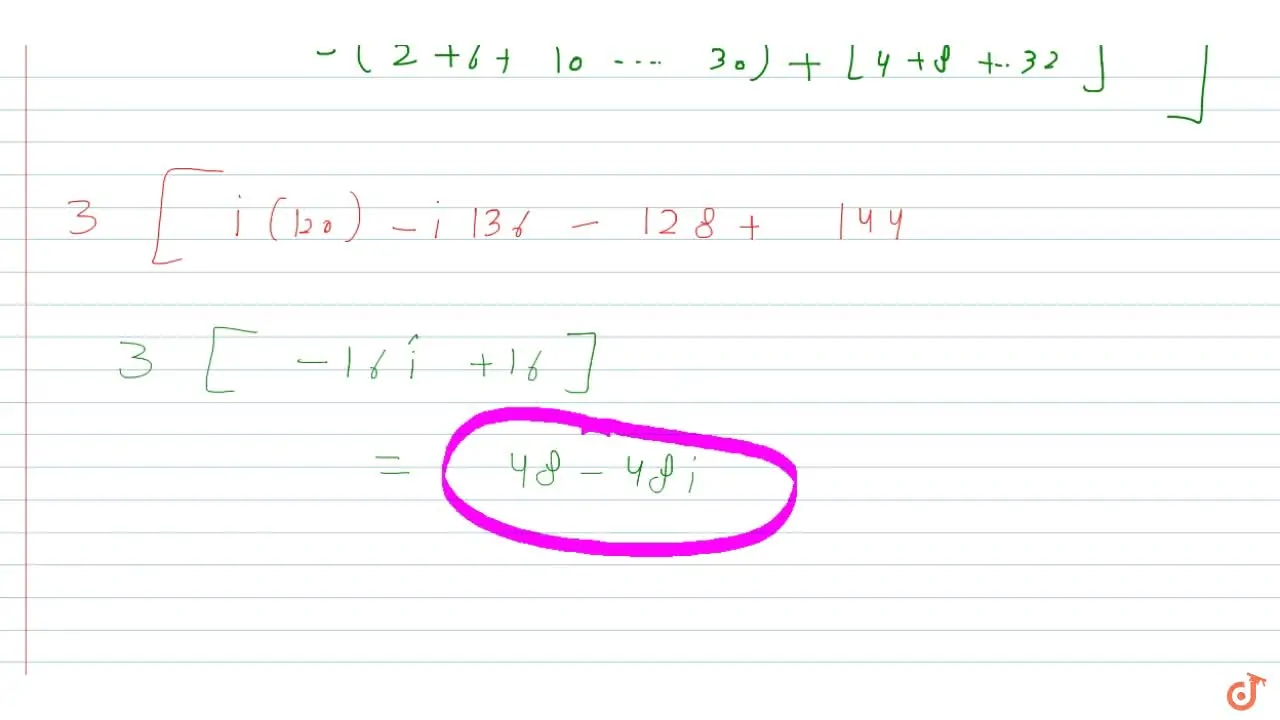 - ( 2 + 6 + 10 ---- 30 ) + [ 4 + 8 + .. 32 ] ]
3 [ i (120) - i 136 - 128 + 144
3 [ - 16 i + 16 ]
= 48 - 48 i